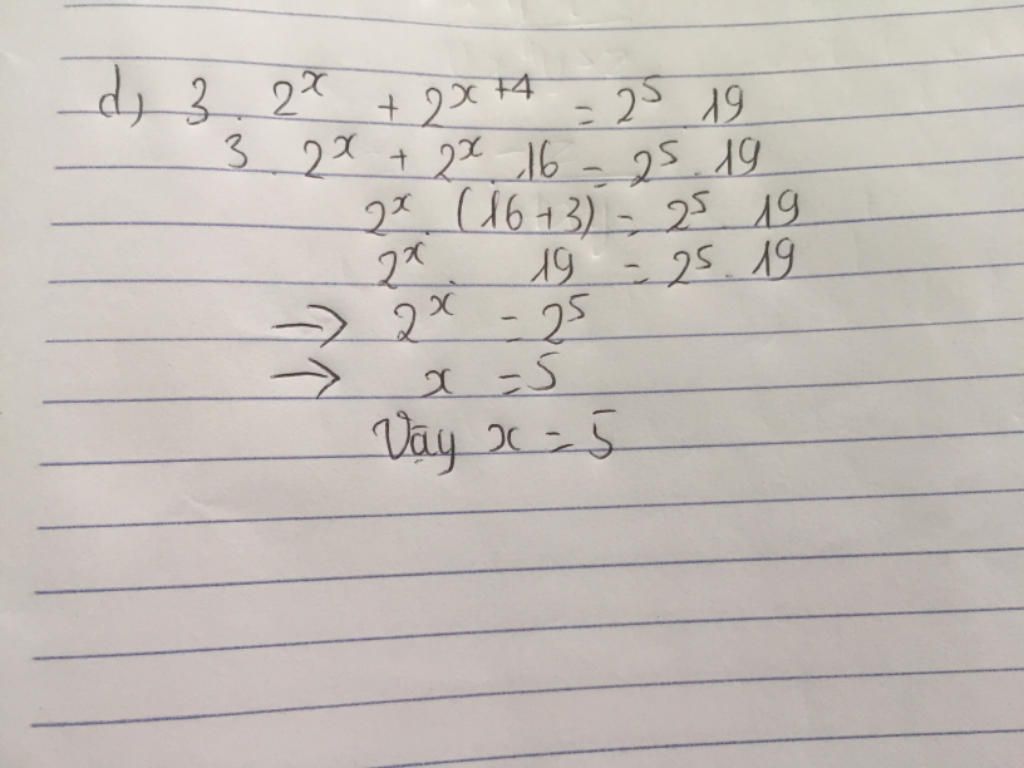 d, 3 . 2^x + 2^{x+4} = 2^5 . 19
3 . 2^x + 2^x . 16 = 2^5 . 19
2^x . (16+3) = 2^5 . 19
2^x . 19 = 2^5 . 19
→ 2^x = 2^5
→ x = 5
Vậy x = 5